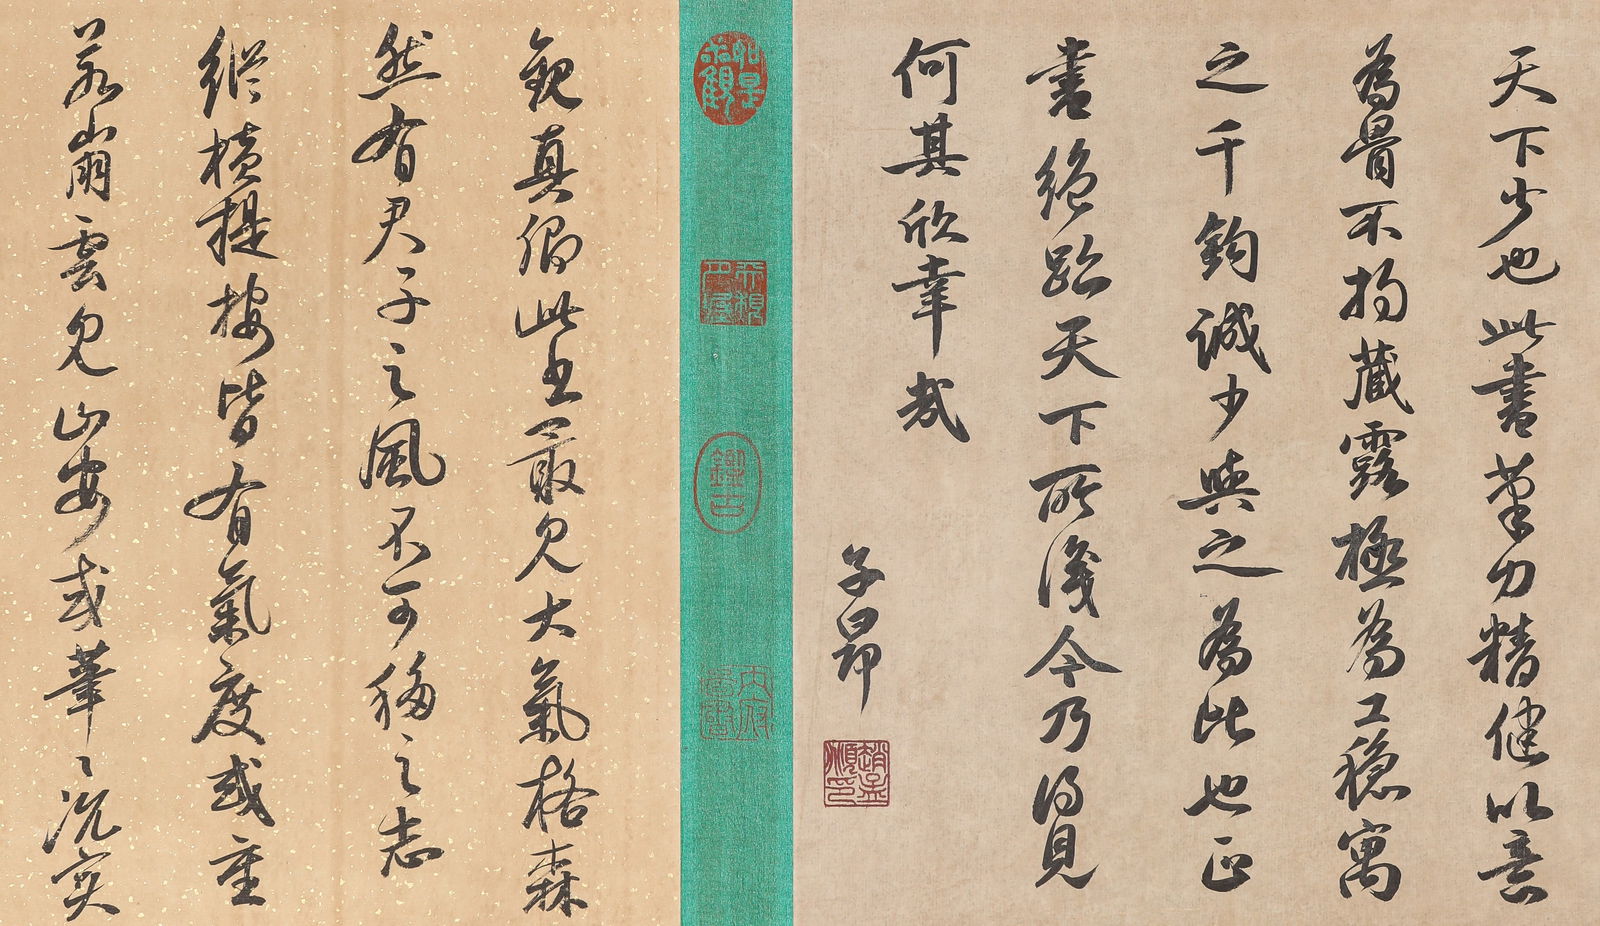 天下少也此書筆力精健以意
為骨不拘藏露極為工穩寓
之千鈞誠少與之為比也正
書絕跡天下所淺今乃得見
何其欣幸哉
子昂
趙孟頫印
如是我觀
鑑古
內府圖書
觀真卿此書最見大氣格森
然有君子之風不可移之志
縱橫提按皆有氣度或重
若崩雲見山安或筆筆沉實